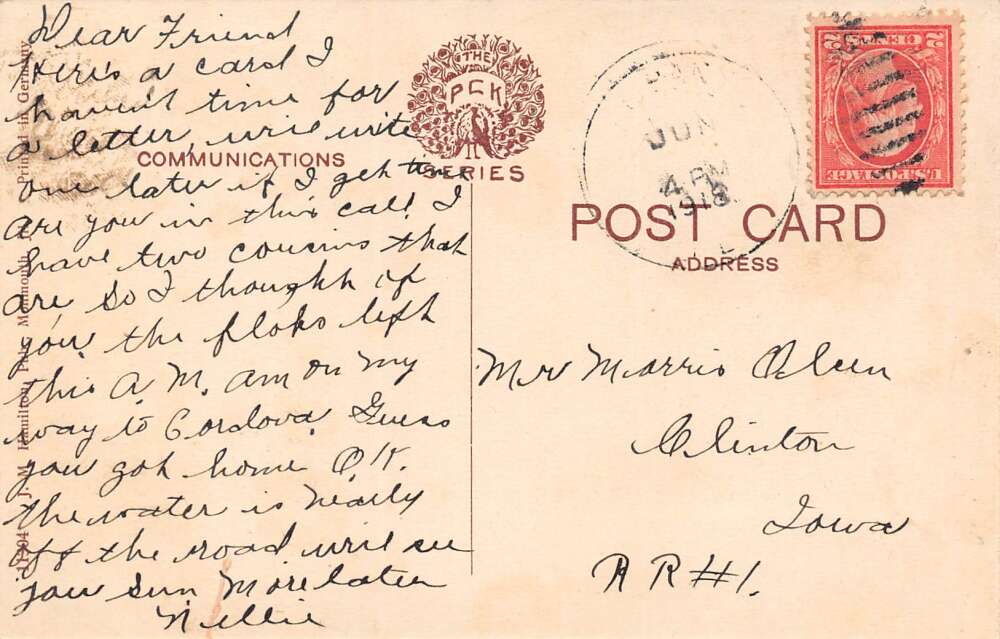 Dear Friend
Here's a card I
haven't time for
a letter, will write
one later if I get time
are you in this call I
have two cousins that
are, so I thought of
you. the floks left
this A.M. am on my
way to Cordova. Guess
you got home O.K.
the water is nearly
off the road will see
you Sun. More later
Nellie
COMMUNICATIONS
THE
PCK
SERIES
JUN
4 PM
1918
2 CENTS 2
U.S. POSTAGE
POST CARD
ADDRESS
Mr Morris Olsen
Clinton
Iowa
R R #1.
J. M. Hamilton, Pub., Monmouth
Printed in Germany